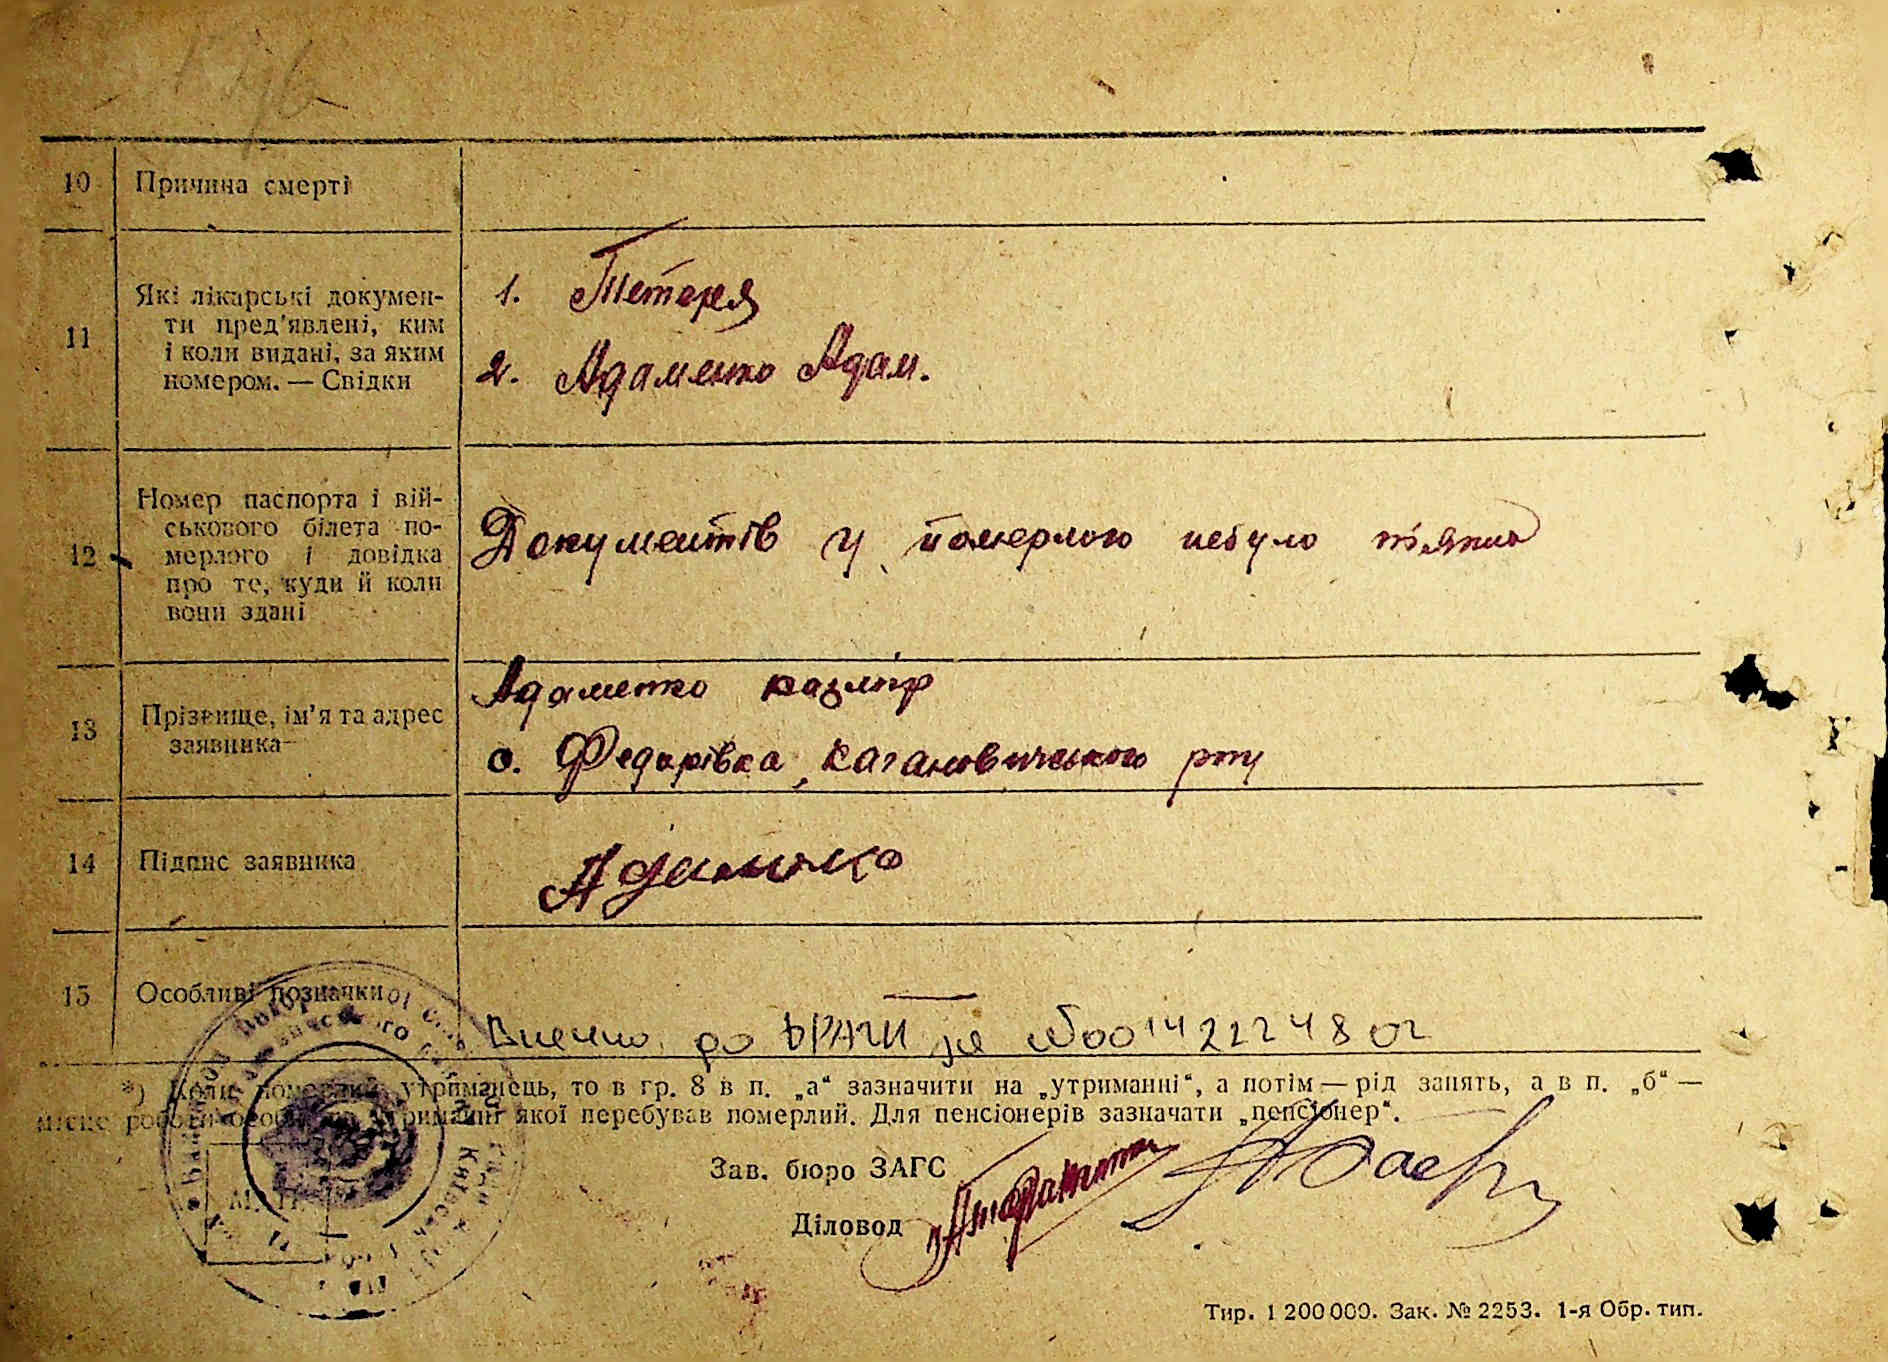 10 Причина смерті
11 Які лікарські докумен-
ти пред'явлені, ким
і коли видані, за яким
номером. — Свідки
1. Тетеря
2. Адаменко Адам.
12 Номер паспорта і вій-
ськового білета по-
мерлого і довідка
про те, куди й коли
вони здані
Документів у померлого небуло
13 Прізвище, ім'я та адрес
заявника
Адаменко Казмір
с. Федорівка, Кагановичського р-ну
14 Підпис заявника
Адаменко
15 Особливі позначки
—
Внесено до ДРАЦС за №00142224802
*) Коли померлий утриманець, то в гр. 8 в п. „а“ зазначити на „утриманні“, а потім — рід занять, а в п. „б“ —
місце роботи особи, на утриманні якої перебував померлий. Для пенсіонерів зазначати „пенсіонер“.
Зав. бюро ЗАГС
Діловод
М. П.
Тир. 1 200 000. Зак. № 2253. 1-я Обр. тип.